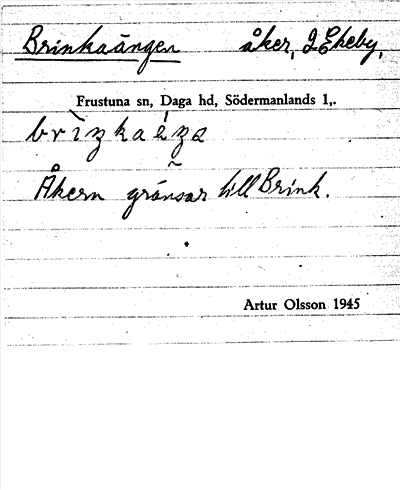 Brinkaängen åker, I Eheby,
Frustuna sn, Daga hd, Södermanlands l,.
Åkern gränsar till Brink.
Artur Olsson 1945